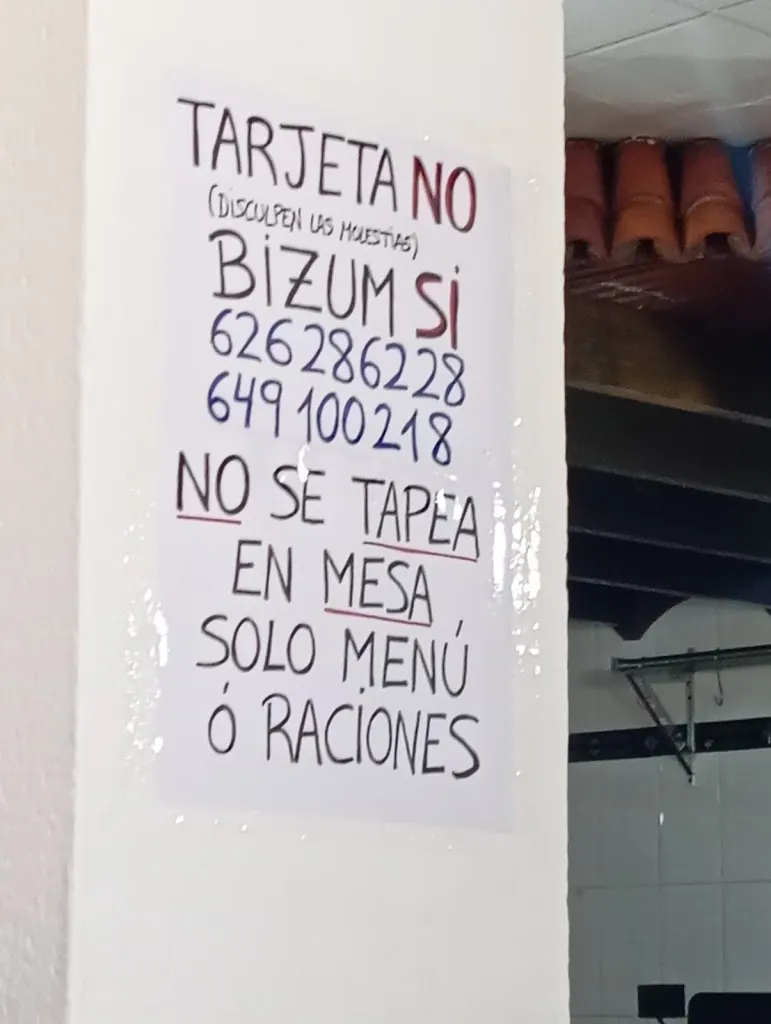 TARJETA NO
(DISCULPEN LAS MOLESTIAS)
BIZUM SI
626286228
649100218
NO SE TAPEA
EN MESA
SOLO MENÚ
Ó RACIONES